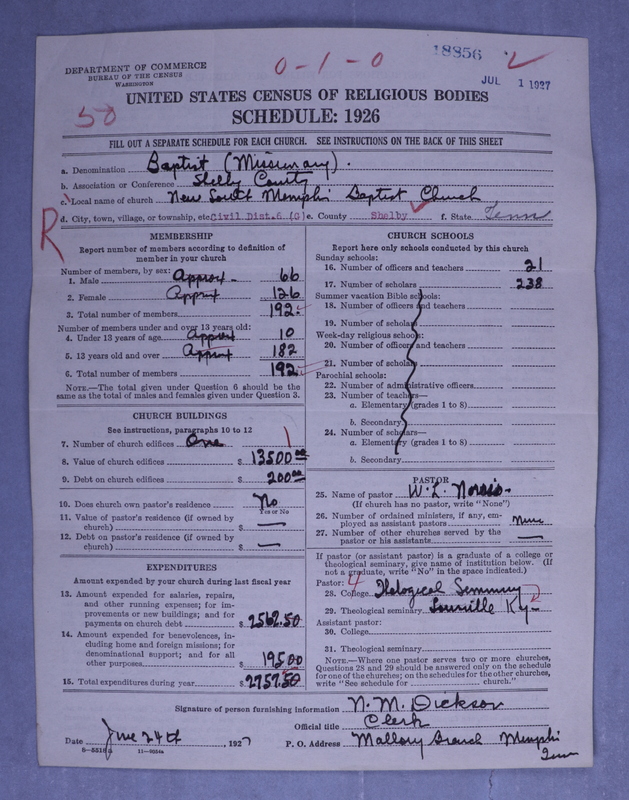 18856
DEPARTMENT OF COMMERCE
BUREAU OF THE CENSUS
WASHINGTON
0-1-0
JUL 1 1927
50
UNITED STATES CENSUS OF RELIGIOUS BODIES
SCHEDULE: 1926
FILL OUT A SEPARATE SCHEDULE FOR EACH CHURCH. SEE INSTRUCTIONS ON THE BACK OF THIS SHEET
a. Denomination Baptist (Missionary).
b. Association or Conference Shelby County
c. Local name of church New South Memphis Baptist Church
d. City, town, village, or township, etc. Civil Dist. 6 (G) e. County Shelby f. State Tenn
R
MEMBERSHIP
Report number of members according to definition of
member in your church
Number of members, by sex:
1. Male Approx - 66
2. Female Approx 126
3. Total number of members 192
Number of members under and over 13 years old:
4. Under 13 years of age Approx 10
5. 13 years old and over Approx 182
6. Total number of members 192
NOTE.—The total given under Question 6 should be
same as the total of males and females given under Question 3.
CHURCH BUILDINGS
See instructions, paragraphs 10 to 12
7. Number of church edifices One 1
8. Value of church edifices $ 13500.00
9. Debt on church edifices $ 200.00
10. Does church own pastor's residence No
Yes or No
11. Value of pastor's residence (if owned by
church) $ —
12. Debt on pastor's residence (if owned by
church) $ —
EXPENDITURES
Amount expended by your church during last fiscal year
13. Amount expended for salaries, repairs,
and other running expenses; for im-
provements or new buildings; and for
payments on church debt $ 2562.50
14. Amount expended for benevolences, in-
cluding home and foreign missions; for
denominational support; and for all
other purposes $ 195.00
15. Total expenditures during year $ 2757.50
CHURCH SCHOOLS
Report here only schools conducted by this church
Sunday schools:
16. Number of officers and teachers 21
17. Number of scholars 238
Summer vacation Bible schools:
18. Number of officers and teachers
19. Number of scholars
Week-day religious schools:
20. Number of officers and teachers
21. Number of scholars
Parochial schools:
22. Number of administrative officers
23. Number of teachers—
a. Elementary (grades 1 to 8)
b. Secondary
24. Number of scholars—
a. Elementary (grades 1 to 8)
b. Secondary
PASTOR
25. Name of pastor W. L. Norris
(If church has no pastor, write "None")
26. Number of ordained ministers, if any, em-
ployed as assistant pastors None
27. Number of other churches served by the
pastor or his assistants —
If pastor (or assistant pastor) is a graduate of a college or
theological seminary, give name of institution below. (If
not a graduate, write "No" in the space indicated.)
Pastor: 4
28. College Theological Seminary
29. Theological seminary Louisville Ky - 2
Assistant pastor:
30. College
31. Theological seminary
NOTE.—Where one pastor serves two or more churches,
Questions 28 and 29 should be answered only on the schedule
for one of the churches; on the schedules for the other churches,
write "See schedule for ........ church."
Signature of person furnishing information N. M. Dickson
Official title Clerk
Date June 24th, 1927 P. O. Address Mallory Branch Memphis
Tenn